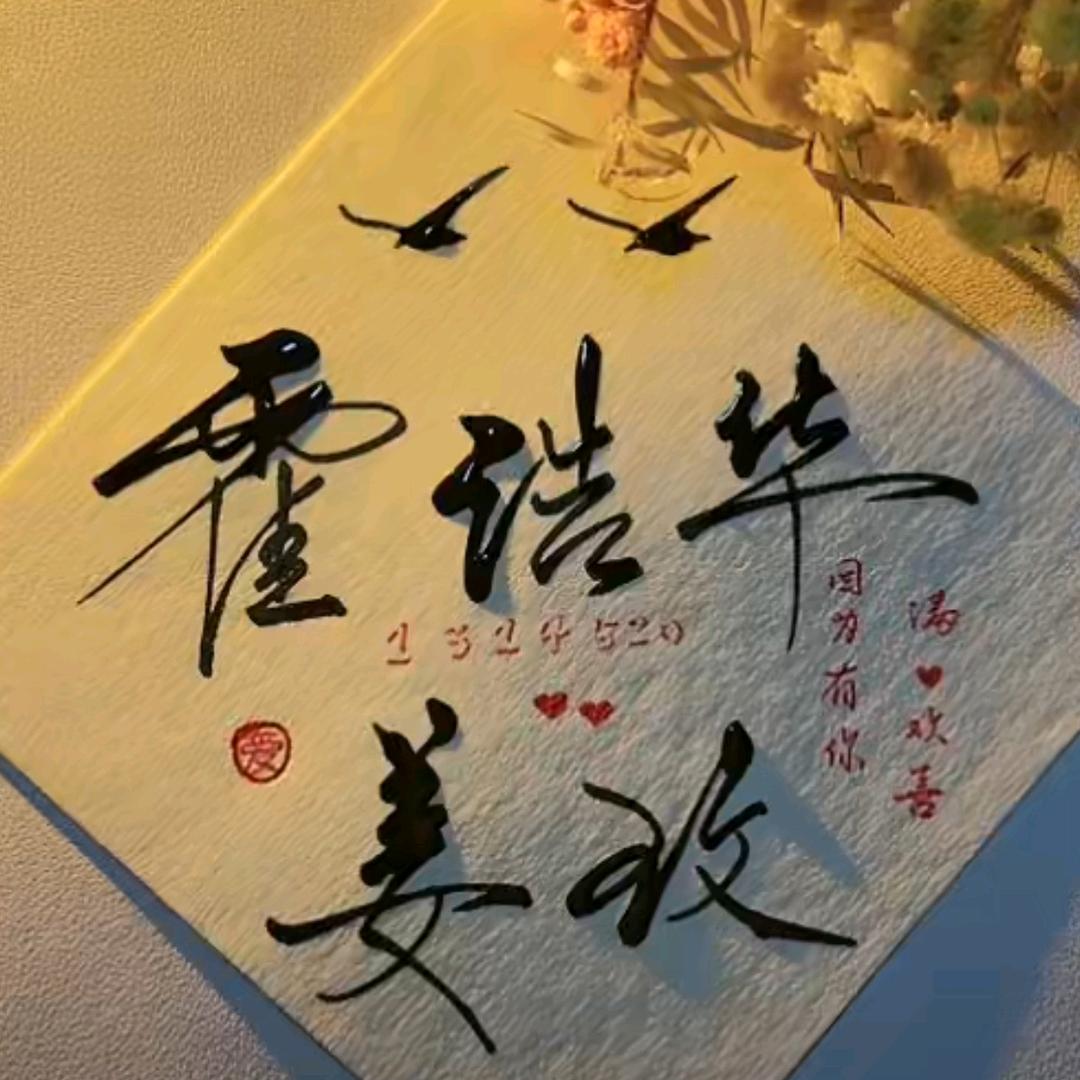 霍诰华
1314520
爱
姜玫
因为有你
满❤欢喜